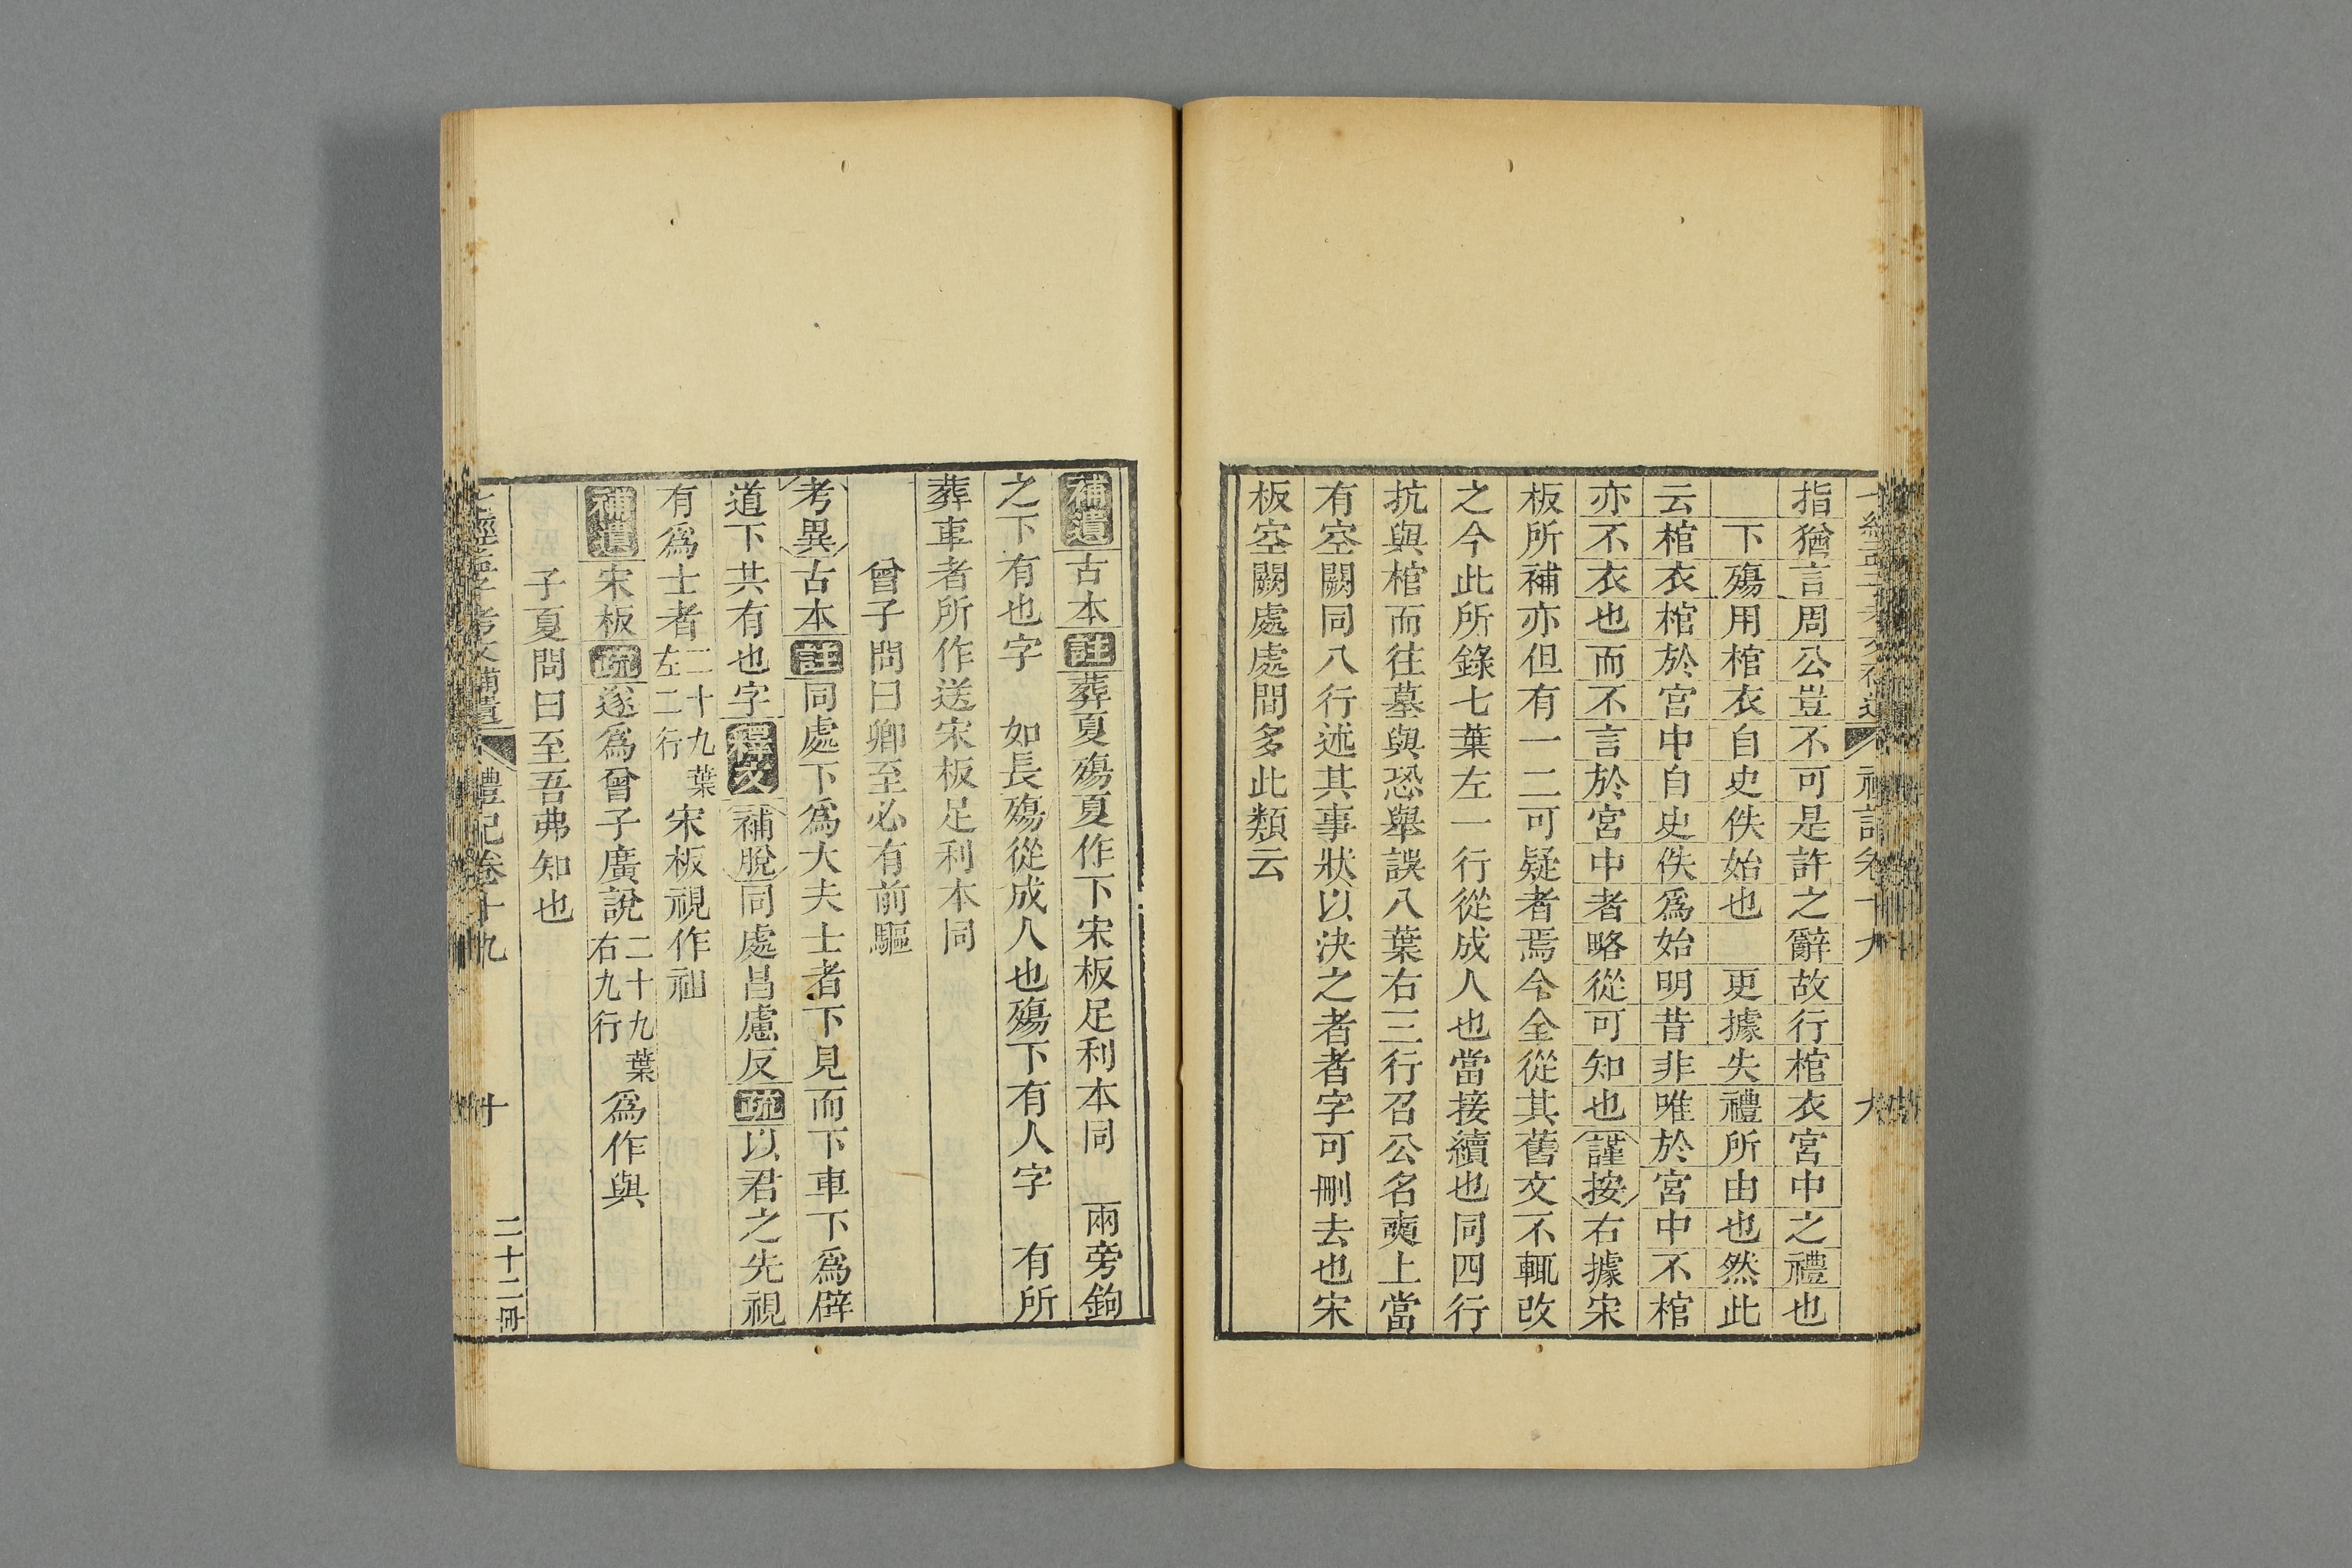 指猶言周公豈不可是許之辭故行棺衣宮中之禮也
下殤用棺衣自史佚始也　更據失禮所由也然此
云棺衣棺於宮中自史佚爲始明昔非唯於宮中不棺
亦不衣也而不言於宮中者略從可知也謹按右據宋
板所補亦但有一二可疑者焉今全從其舊文不輒改
之今此所錄七葉左一行從成人也當接續也同四行
抗與棺而往墓與恐舉誤八葉右三行召公名奭上當
有空闕同八行述其事狀以決之者者字可刪去也宋
板空闕處處間多此類云
補遺古本註葬夏殤夏作下宋板足利本同　兩旁鉤
之下有也字　如長殤從成人也殤下有人字　有所
葬車者所作送宋板足利本同
曾子問曰卿至必有前驅
考異古本註同處下爲大夫士者下見而下車下爲辟
道下共有也字釋文補脫同處昌慮反疏以君之先視
有爲士者二十九葉左二行宋板視作祖
補遺宋板疏遂爲曾子廣說二十九葉右九行爲作與
子夏問曰至吾弗知也
七經孟子考文補遺　禮記卷十九　十　二十二冊